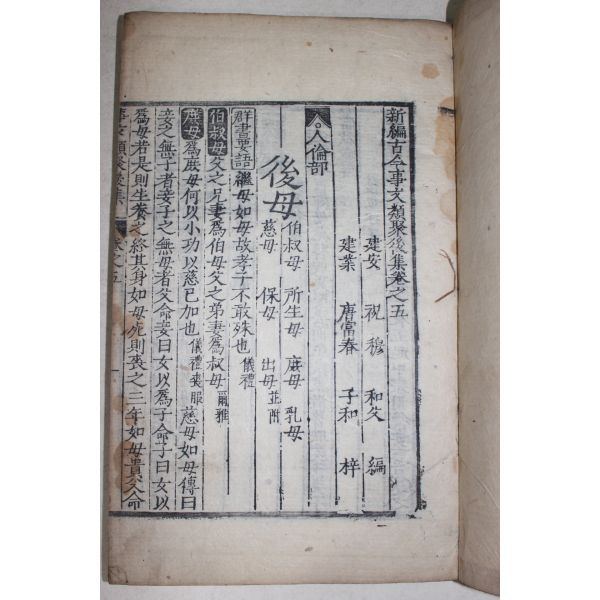 新編古今事文類聚後集卷之五
建安 祝穆 和父 編
建業 唐富春 子和 梓
人倫部
後母
伯叔母 所生母 庶母 乳母
慈母 保母 出母 並附
群書要語 繼母如母故孝子不敢殊也 儀禮
伯叔母 父之兄妻爲伯母父之弟妻爲叔母 爾雅
庶母 爲庶母何以小功以慈已加也 儀禮喪服 慈母如母傳曰
妾之無子者妾子之無母者父命妾曰女以爲子命子曰女以
爲母若是則生養之終其身如母死則喪之三年如母貴父命
事文類聚後集 卷之五